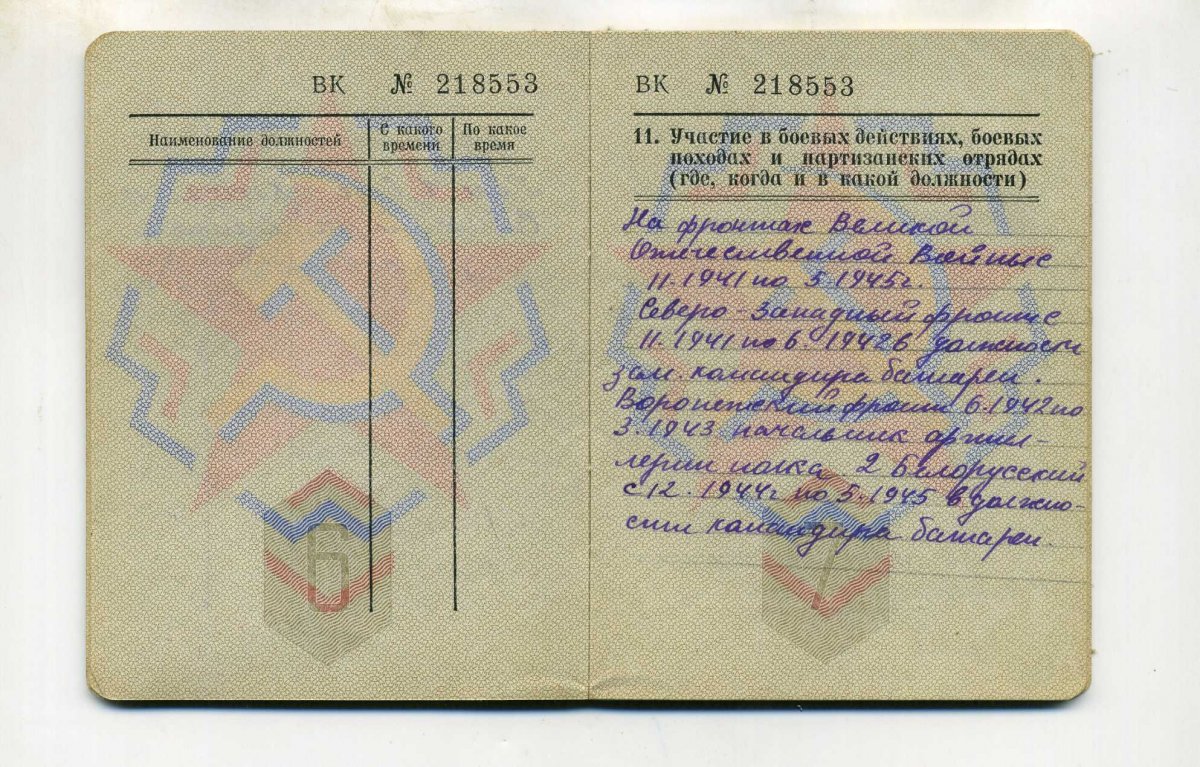 ВК № 218553
Наименование должностей
С какого времени
По какое время
6
ВК № 218553
11. Участие в боевых действиях, боевых
походах и партизанских отрядах
(где, когда и в какой должности)
На фронтах Великой
Отечественной Войны с
11.1941 по 5.1945г.
Северо-Западный фронт с
11.1941 по 6.1942 в должности
зам. командира батареи.
Воронежский фронт 6.1942 по
3.1943 начальник артил-
лерии полка 2 Белорусский
с 12.1944г по 5.1945 в должно-
сти командира батареи.
7